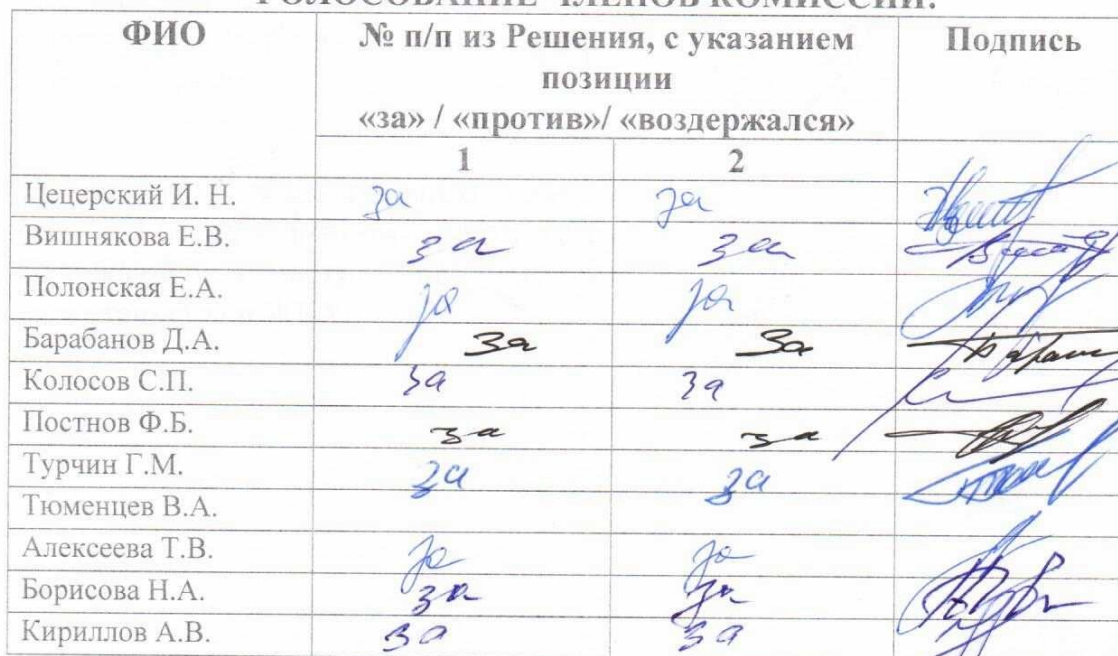 ГОЛОСОВАНИЕ ЧЛЕНОВ КОМИССИИ:
ФИО № п/п из Решения, с указанием Подпись
позиции
«за» / «против»/ «воздержался»
1 2
Цецерский И. Н. за за
Вишнякова Е.В. за за
Полонская Е.А. за за
Барабанов Д.А. за за
Колосов С.П. за за
Постнов Ф.Б. за за
Турчин Г.М. за за
Тюменцев В.А.
Алексеева Т.В. за за
Борисова Н.А. за за
Кириллов А.В. за за